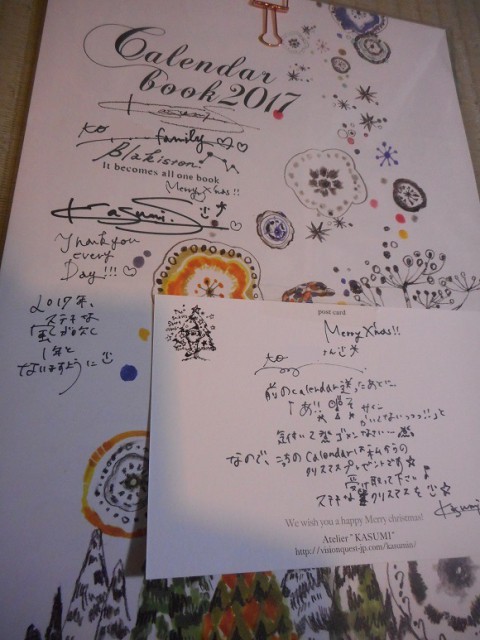 Calendar
book 2017
to family ♡♡
Blakiston!
It becomes all one book
Merry Xmas!!
Kasumi.S
Thank you
every
Day!!! ♡
2017年、
ステキな
1年と
なりますように
post card
Merry Xmas!!
to
さん
前のCalendar送ったあとに…
「あ!! サイン
かいてないっっっ!!」と
気付いて ゴメンなさい…
なので、こちらのCalendarは私からの
クリスマスプレゼントです☆
受け取って下さい♪
ステキなクリスマスを
Kasumi
We wish you a happy Merry christmas!
Atelier "KASUMI"
http://visionquest-jp.com/kasumin/